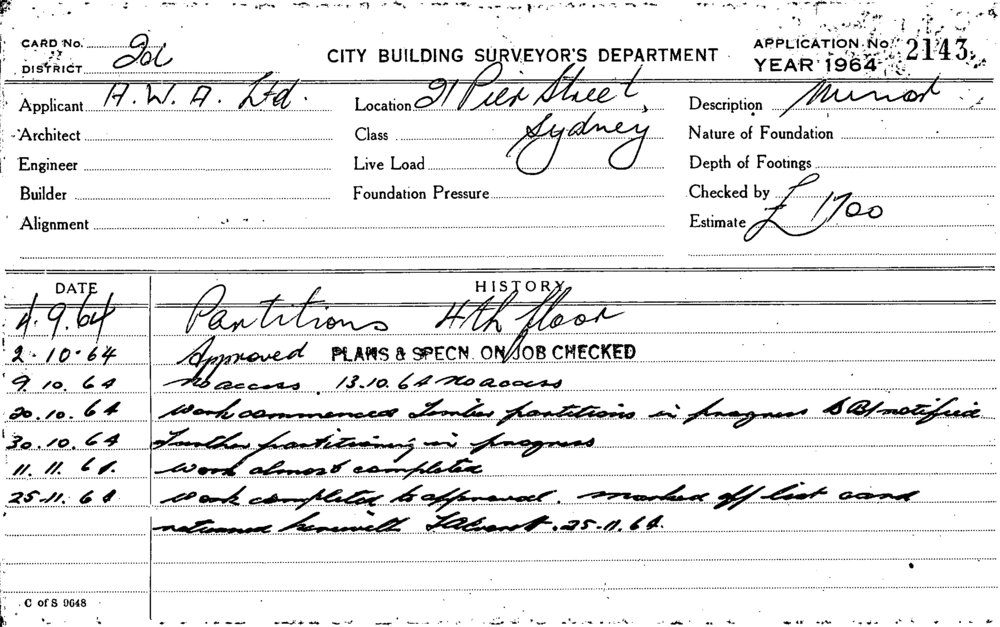 CARD No. CITY BUILDING SURVEYOR'S DEPARTMENT APPLICATION No. 2143
DISTRICT 2d YEAR 1964
Applicant A. W. A. Ltd. Location 21 Pier Street, Description Minor
Architect Class Sydney Nature of Foundation
Engineer Live Load Depth of Footings
Builder Foundation Pressure Checked by
Alignment Estimate £1700
DATE HISTORY
4.9.64 Partitions 4th floor
2-10-64 Approved PLANS & SPECN. ON JOB CHECKED
9.10.64 no access 13.10.64 no access
20.10.64 Work commenced Timber partitions in progress notified
30.10.64 Further partitioning in progress
11.11.64. Work almost completed
25-11.64 Work completed to approval. marked off list card
returned herewith 25-11.64.
C of S 9648